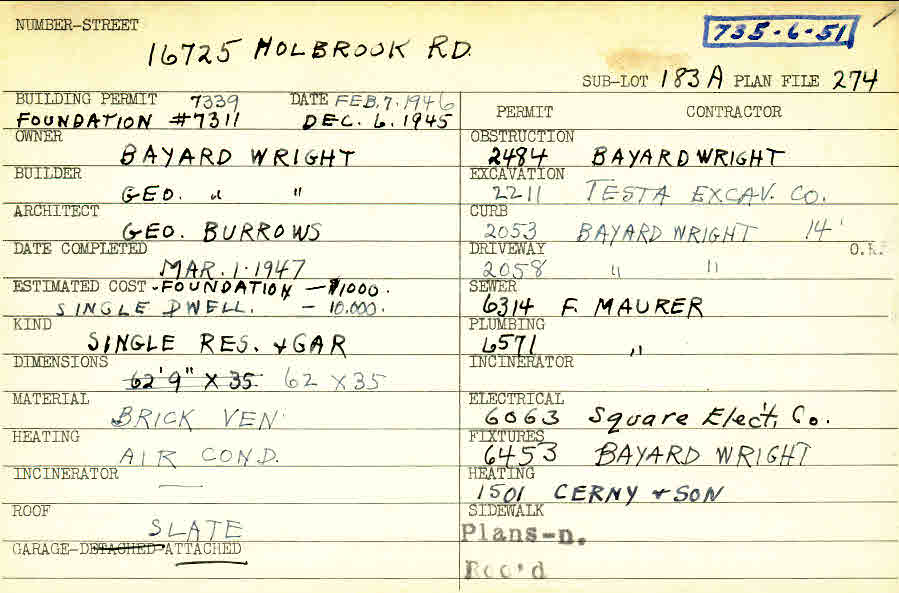 NUMBER-STREET
16725 HOLBROOK RD.
735-6-51
SUB-LOT 183A PLAN FILE 274
BUILDING PERMIT 7339 DATE FEB. 7. 1946
FOUNDATION #7311 DEC. 6. 1945
OWNER
BAYARD WRIGHT
BUILDER
GEO. " "
ARCHITECT
GEO. BURROWS
DATE COMPLETED
MAR. 1. 1947
ESTIMATED COST - FOUNDATION - $1000.
SINGLE DWELL. - 10.000.
KIND
SINGLE RES. & GAR
DIMENSIONS
62'9" X 35. 62 X 35
MATERIAL
BRICK VEN.
HEATING
AIR COND.
INCINERATOR
—
ROOF
SLATE
GARAGE-DETACHED-ATTACHED
PERMIT CONTRACTOR
OBSTRUCTION
2484 BAYARD WRIGHT
EXCAVATION
2211 TESTA EXCAV. CO.
CURB
2053 BAYARD WRIGHT 14'
DRIVEWAY O.K.
2058 " "
SEWER
6314 F. MAURER
PLUMBING
6571 "
INCINERATOR
ELECTRICAL
6063 Square Elect. Co.
FIXTURES
6453 BAYARD WRIGHT
HEATING
1501 CERNY & SON
SIDEWALK
Plans-n.
Rec'd